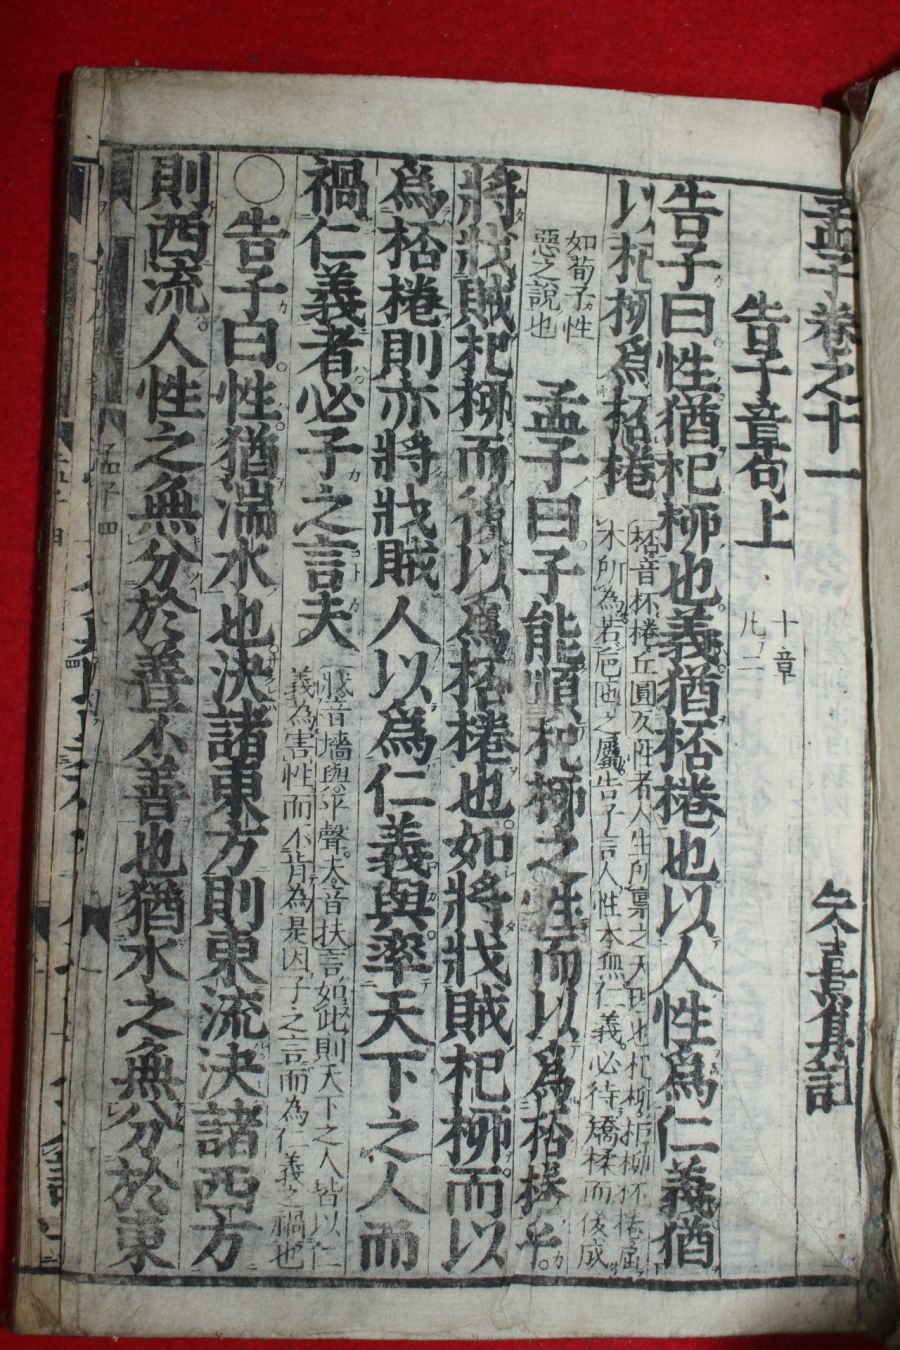 孟子卷之十一 朱熹集註
告子章句上 凡二十章
告子曰性猶杞柳也義猶桮棬也以人性爲仁義猶
以杞柳爲桮棬 桮音杯棬丘圓反性者人生所稟之天理也杞柳柜柳桮棬屈
木所為若卮匜之屬告子言人性本無仁義必待矯揉而後成
如荀子性
惡之說也 孟子曰子能順杞柳之性而以爲桮棬乎
將戕賊杞柳而後以爲桮棬也如將戕賊杞柳而以
爲桮棬則亦將戕賊人以爲仁義與率天下之人而
禍仁義者必子之言夫 戕音墻與平聲夫音扶言如此則天下之人皆以仁
義為害性而不肯為是因子之言而為仁義之禍也
○告子曰性猶湍水也決諸東方則東流決諸西方
則西流人性之無分於善不善也猶水之無分於東
孟子四